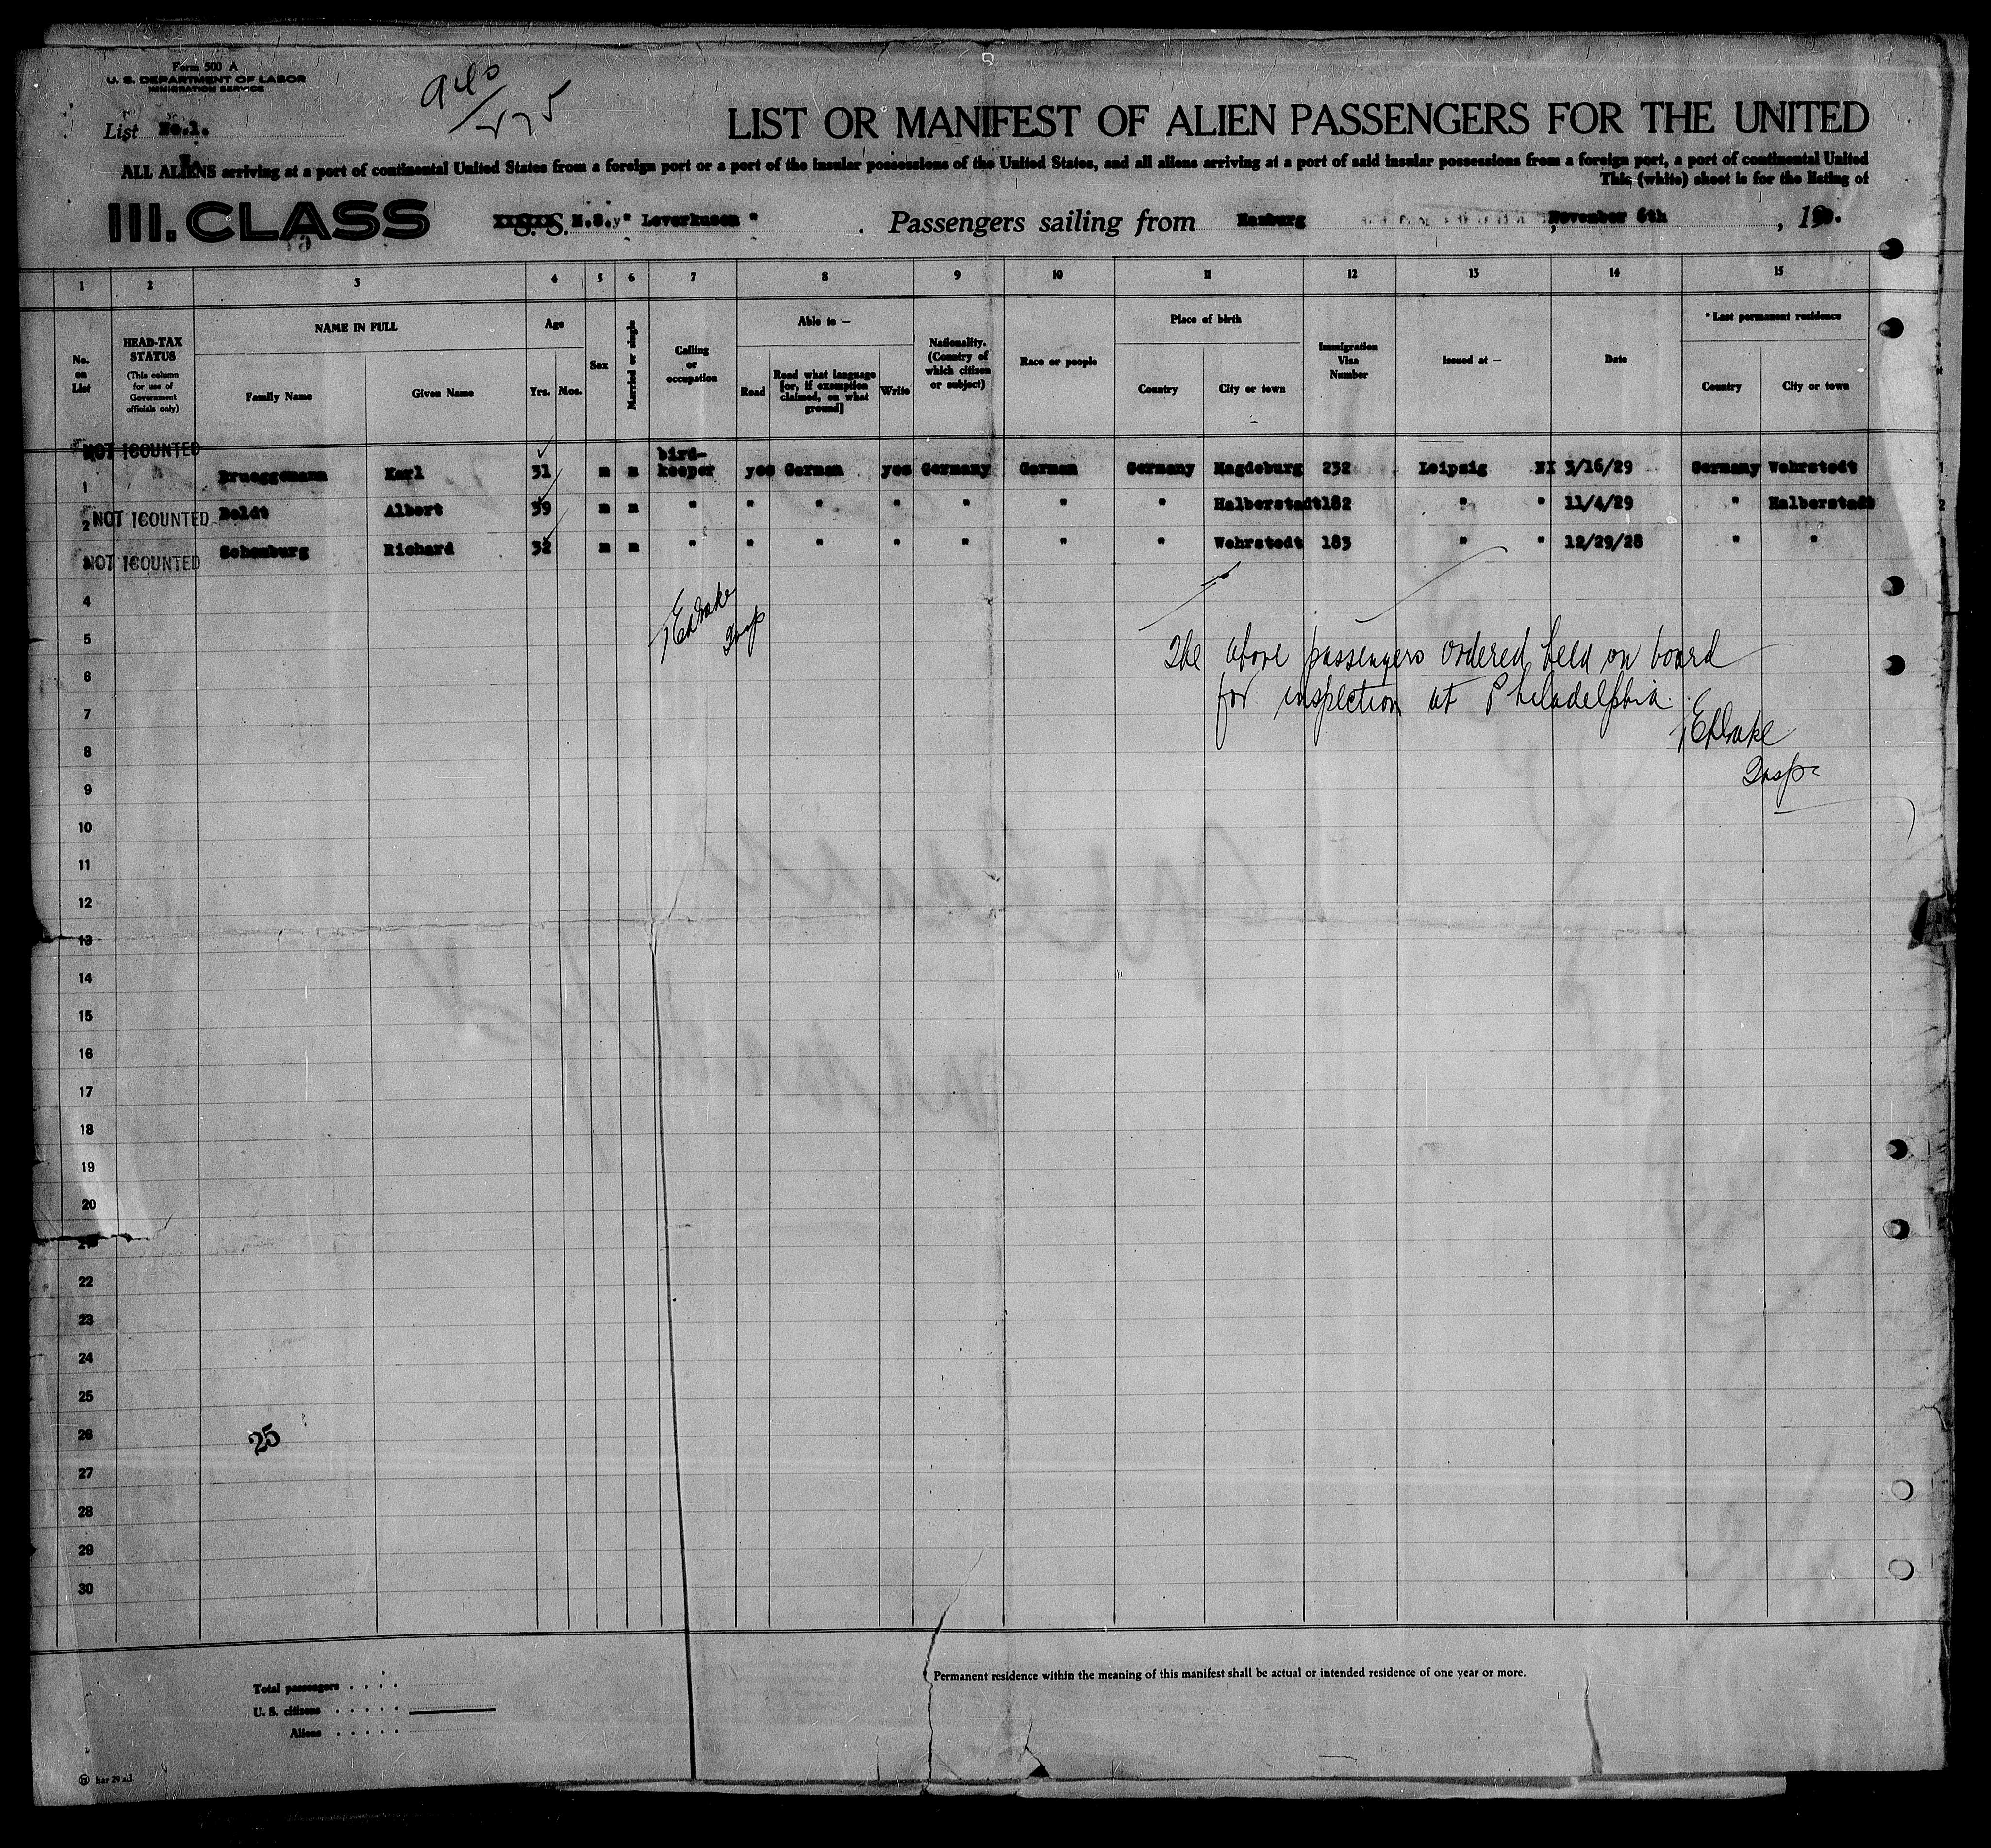 Form 500 A
U. S. DEPARTMENT OF LABOR
IMMIGRATION SERVICE
List No.1.
LIST OR MANIFEST OF ALIEN PASSENGERS FOR THE UNITED
ALL ALIENS arriving at a port of continental United States from a foreign port or a port of the insular possessions of the United States, and all aliens arriving at a port of said insular possessions from a foreign port, a port of continental United
This (white) sheet is for the listing of
III. CLASS S. S. M.S." Leverkusen " . Passengers sailing from Hamburg , November 6th , 19
1 2 3 4 5 6 7 8 9 10 11 12 13 14 15
No. on List
HEAD-TAX STATUS
(This column for use of Government officials only)
NAME IN FULL
Family Name
Given Name
Age
Yrs. Mos.
Sex
Married or single
Calling or occupation
Able to —
Read
Read what language [or, if exemption claimed, on what ground]
Write
Nationality. (Country of which citizen or subject)
Race or people
Place of birth
Country
City or town
Immigration Visa Number
Issued at —
Date
* Last permanent residence
Country
City or town
NOT COUNTED
1 Brueggemann Karl 31 m m bird-keeper yes German yes Germany German Germany Magdeburg 232 Leipzig NI 3/16/29 Germany Wehrstedt 1
2 NOT COUNTED Boldt Albert 39 m m " " " " " " " Halberstadt 182 " " 11/4/29 " Halberstadt 2
NOT COUNTED Schomburg Richard 32 m m " " " " " " " Wehrstedt 183 " " 12/29/28 " "
4
5
The above passengers ordered held on board
6
for inspection at Philadelphia.
7
8
Insp.
9
10
11
12
13
14
15
16
17
18
19
20
21
22
23
24
25
26
25
27
28
29
30
Permanent residence within the meaning of this manifest shall be actual or intended residence of one year or more.
Total passengers . . . .
U. S. citizens . . . . .
Aliens . . . . .
har 29 ad